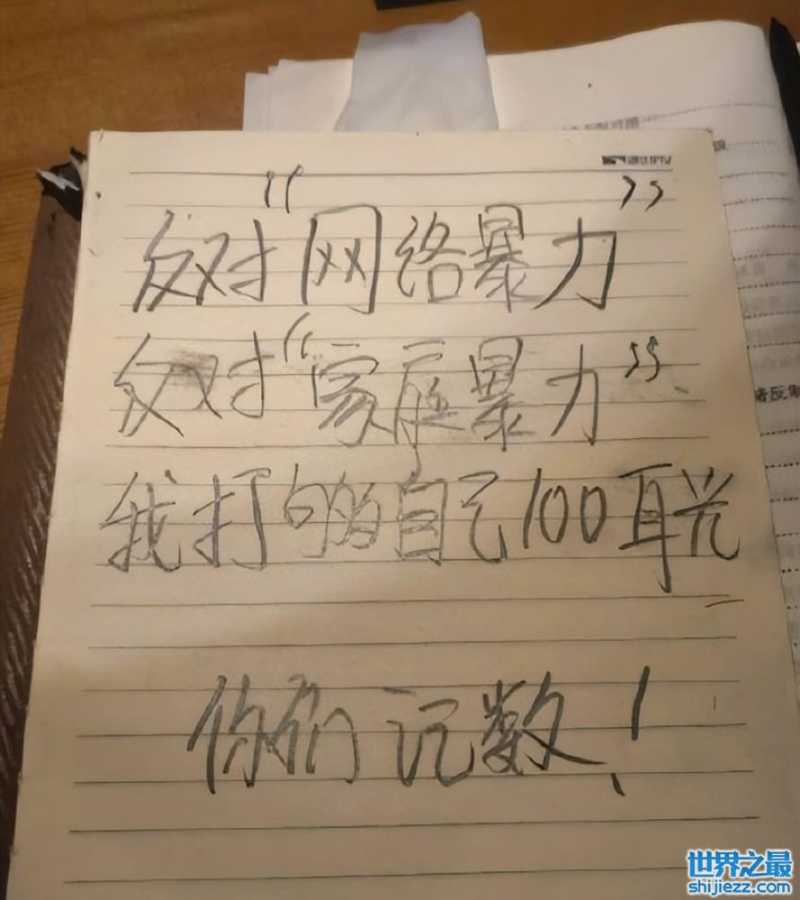 反对“网络暴力”
反对“家庭暴力”
我打够自己100耳光
你们记数！
世界之最
shijiezz.com